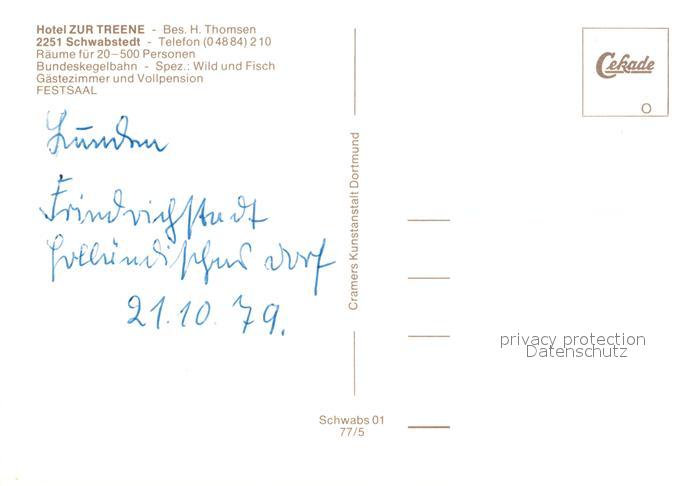 Hotel ZUR TREENE - Bes. H. Thomsen
2251 Schwabstedt - Telefon (0 48 84) 2 10
Räume für 20–500 Personen
Bundeskegelbahn - Spez.: Wild und Fisch
Gästezimmer und Vollpension
FESTSAAL
Lunden
Friedrichstadt
holländisches Dorf
21.10.79.
Cramers Kunstanstalt Dortmund
Schwabs 01
77/5
Cekade
privacy protection
Datenschutz